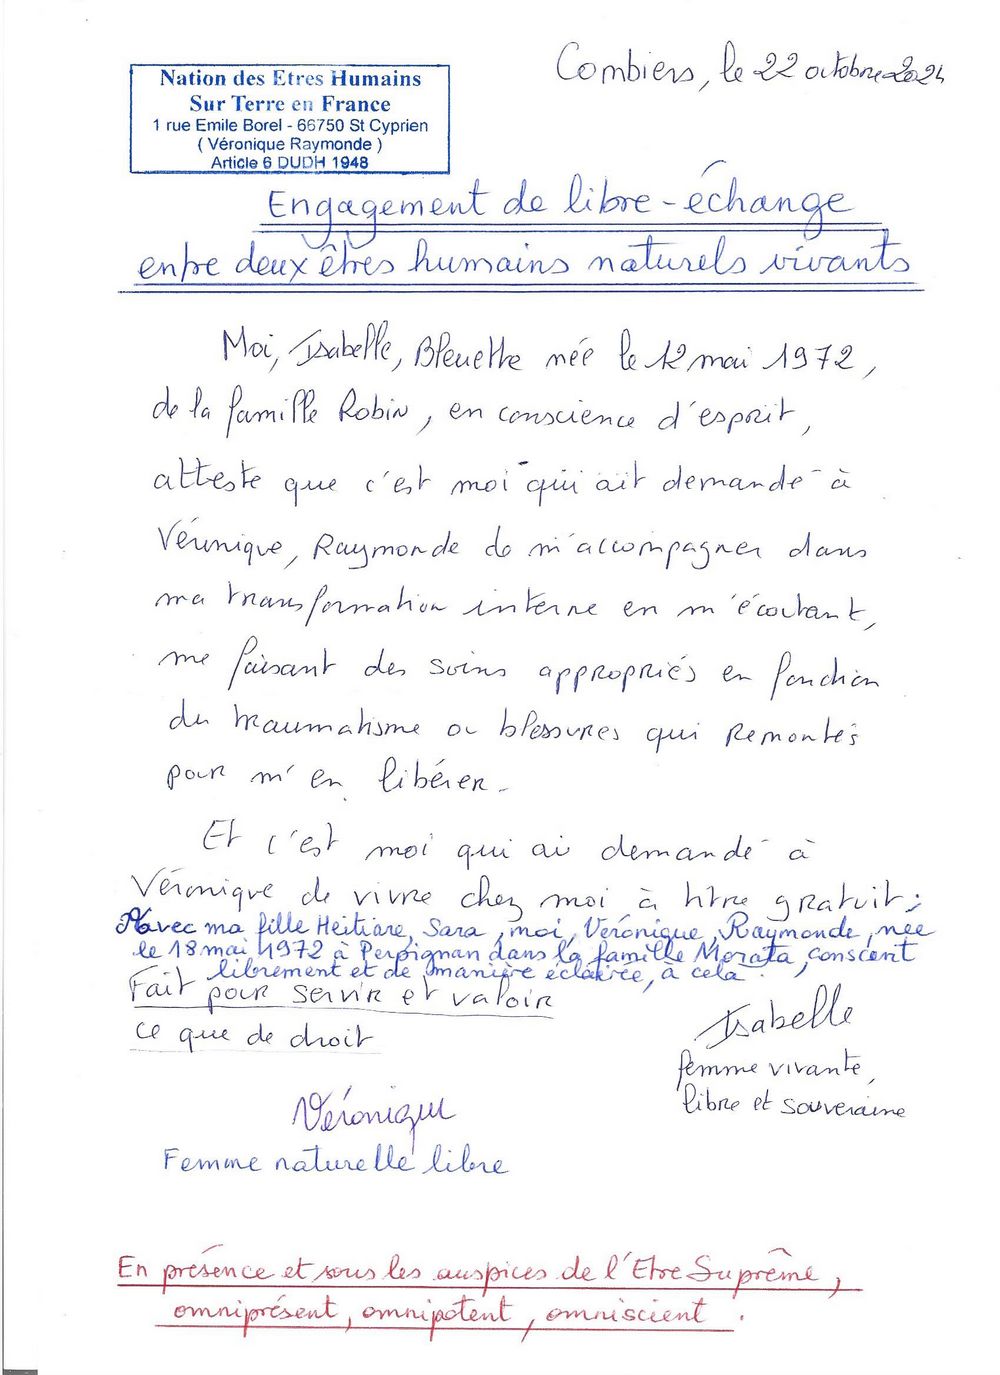 Combiers, le 22 octobre 2024
Nation des Etres Humains
Sur Terre en France
1 rue Emile Borel - 66750 St Cyprien
( Véronique Raymonde )
Article 6 DUDH 1948
Engagement de libre-échange
entre deux êtres humains naturels vivants
Moi, Isabelle, Bleuette née le 12 mai 1972,
de la famille Robin, en conscience d'esprit,
atteste que c'est moi qui ait demandé à
Véronique, Raymonde de m'accompagner dans
ma transformation interne en m'écoutant,
me faisant des soins appropriés en fonction
du traumatisme ou blessures qui remontés
pour m'en libérer.
Et c'est moi qui ai demandé à
Véronique de vivre chez moi à titre gratuit ;
avec ma fille Heitiare, Sara, moi, Véronique, Raymonde, née
le 18 mai 1972 à Perpignan dans la famille Morata, consent
librement et de manière éclairée, à cela.
Fait pour servir et valoir
ce que de droit
Isabelle
femme vivante,
libre et souveraine
Véronique
Femme naturelle libre
En présence et sous les auspices de l'Etre Suprême,
omniprésent, omnipotent, omniscient.